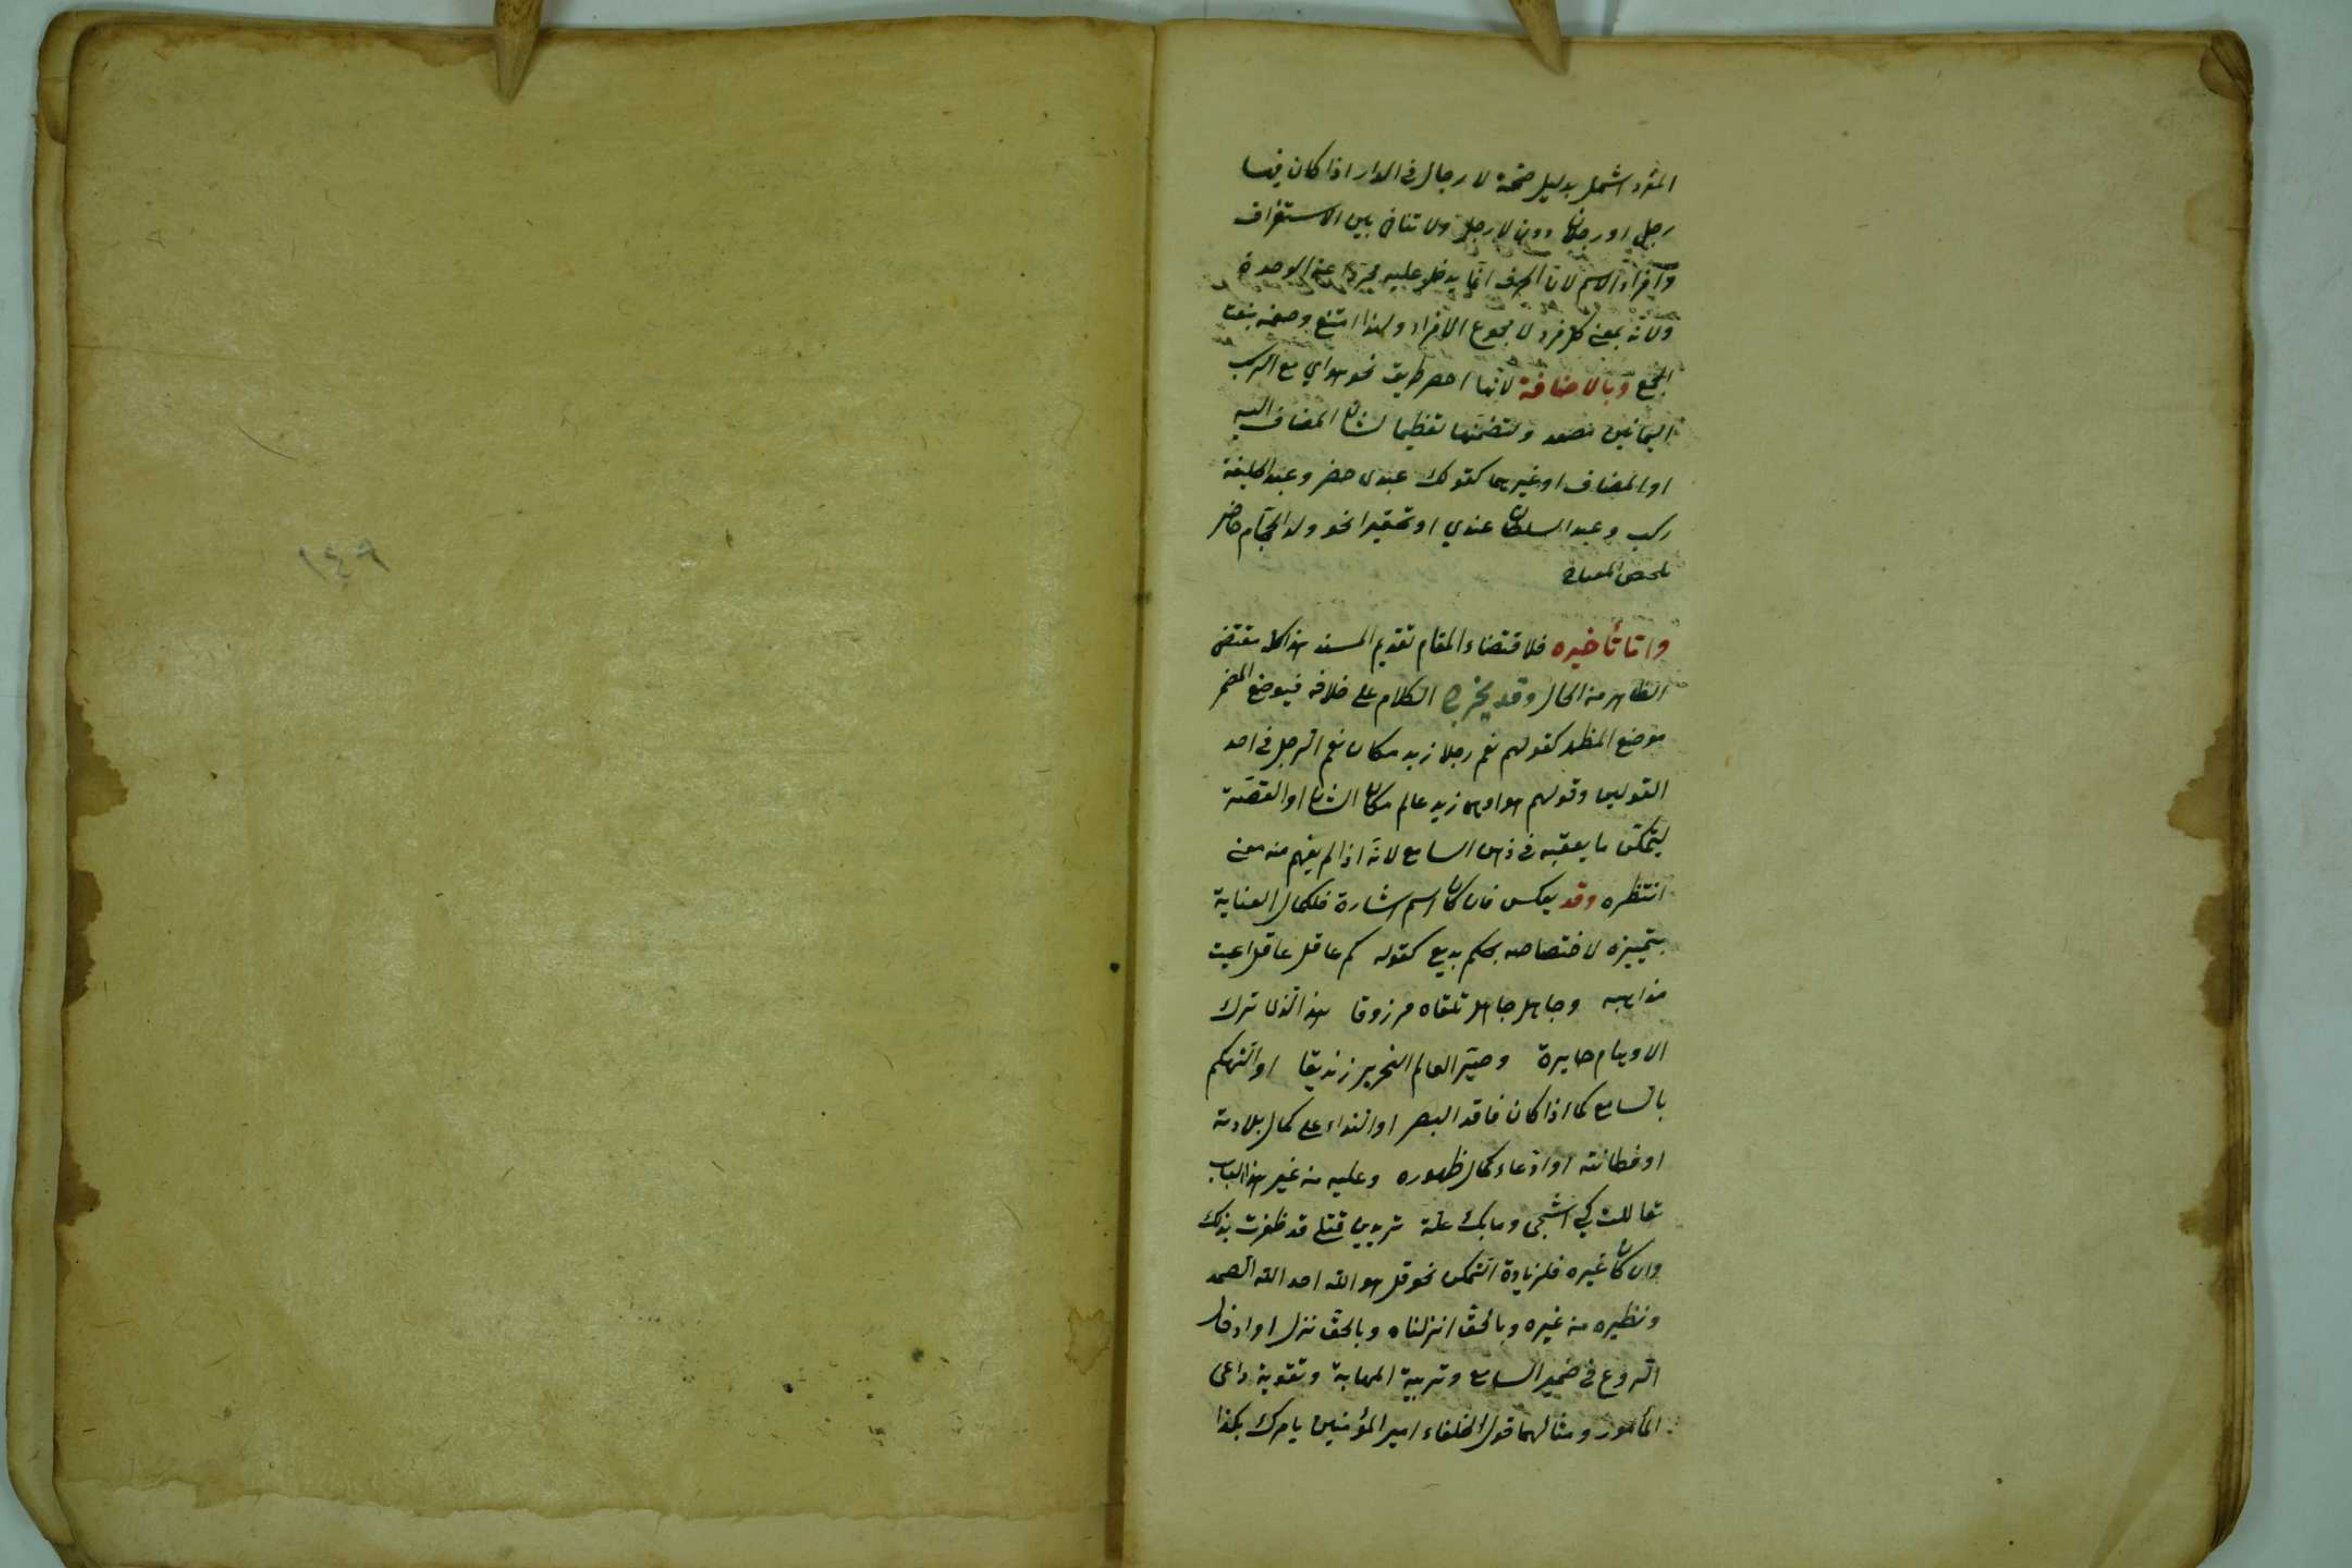 المفرد اشمل بدليل صحة لا رجال فى الدار اذا كان فيها
رجل او رجلان دون لا رجل ولا تنافى بين الاستغراق
وافراد الاسم لان الحرف انما يدخل عليه مجردا عن الوحدة
ولانه بمعنى كل فرد لا مجموع الافراد ولهذا امتنع وصفه بنعت
الجمع وبالاضافة لانها احصر طريق نحو هواي مع الركب
اليمانين مصعد ولتضمنها تعظيما لشان المضاف اليه
او المضاف او غيرهما كقولك عبدى حضر وعبد الخليفة
ركب وعبد السلطان عندي او تحقيرا نحو ولد الحجام حاضر
ملخص المعانى
واما تأخيره فلاقتضاء المقام تقديم المسند هذا كله مقتضى
الظاهر من الحال وقد يخرج الكلام على خلافه فيوضع المضمر
موضع المظهر كقولهم نعم رجلا زيد مكان نعم الرجل فى احد
القولين وقولهم هو او هى زيد عالم مكان الشان او القصة
ليتمكن ما يعقبه فى ذهن السامع لانه اذا لم يفهم منه معنى
انتظره وقد يعكس فان كان اسم اشارة فلكمال العناية
بتمييزه لاختصاصه بحكم بديع كقوله كم عاقل عاقل اعيت
مذاهبه وجاهل جاهل تلقاه مرزوقا هذا الذى ترك
الاوهام حايرة وصير العالم النحرير زنديقا او التهكم
بالسامع كما اذا كان فاقد البصر او النداء على كمال بلادته
او فطانته او ادعاء كمال ظهوره وعليه من غير هذا الباب
تعاللت كي اشجى وما بك علة تريدين قتلى قد ظفرت بذلك
وان كان غيره فلزيادة التمكن نحو قل هو الله احد الله الصمد
ونظيره من غيره وبالحق انزلناه وبالحق نزل او ادخال
الروع فى ضمير السامع وتربية المهابة وتقوية داعى
المأمور ومثالهما قول الخلفاء امير المؤمنين يامرك بكذا
١٤٩